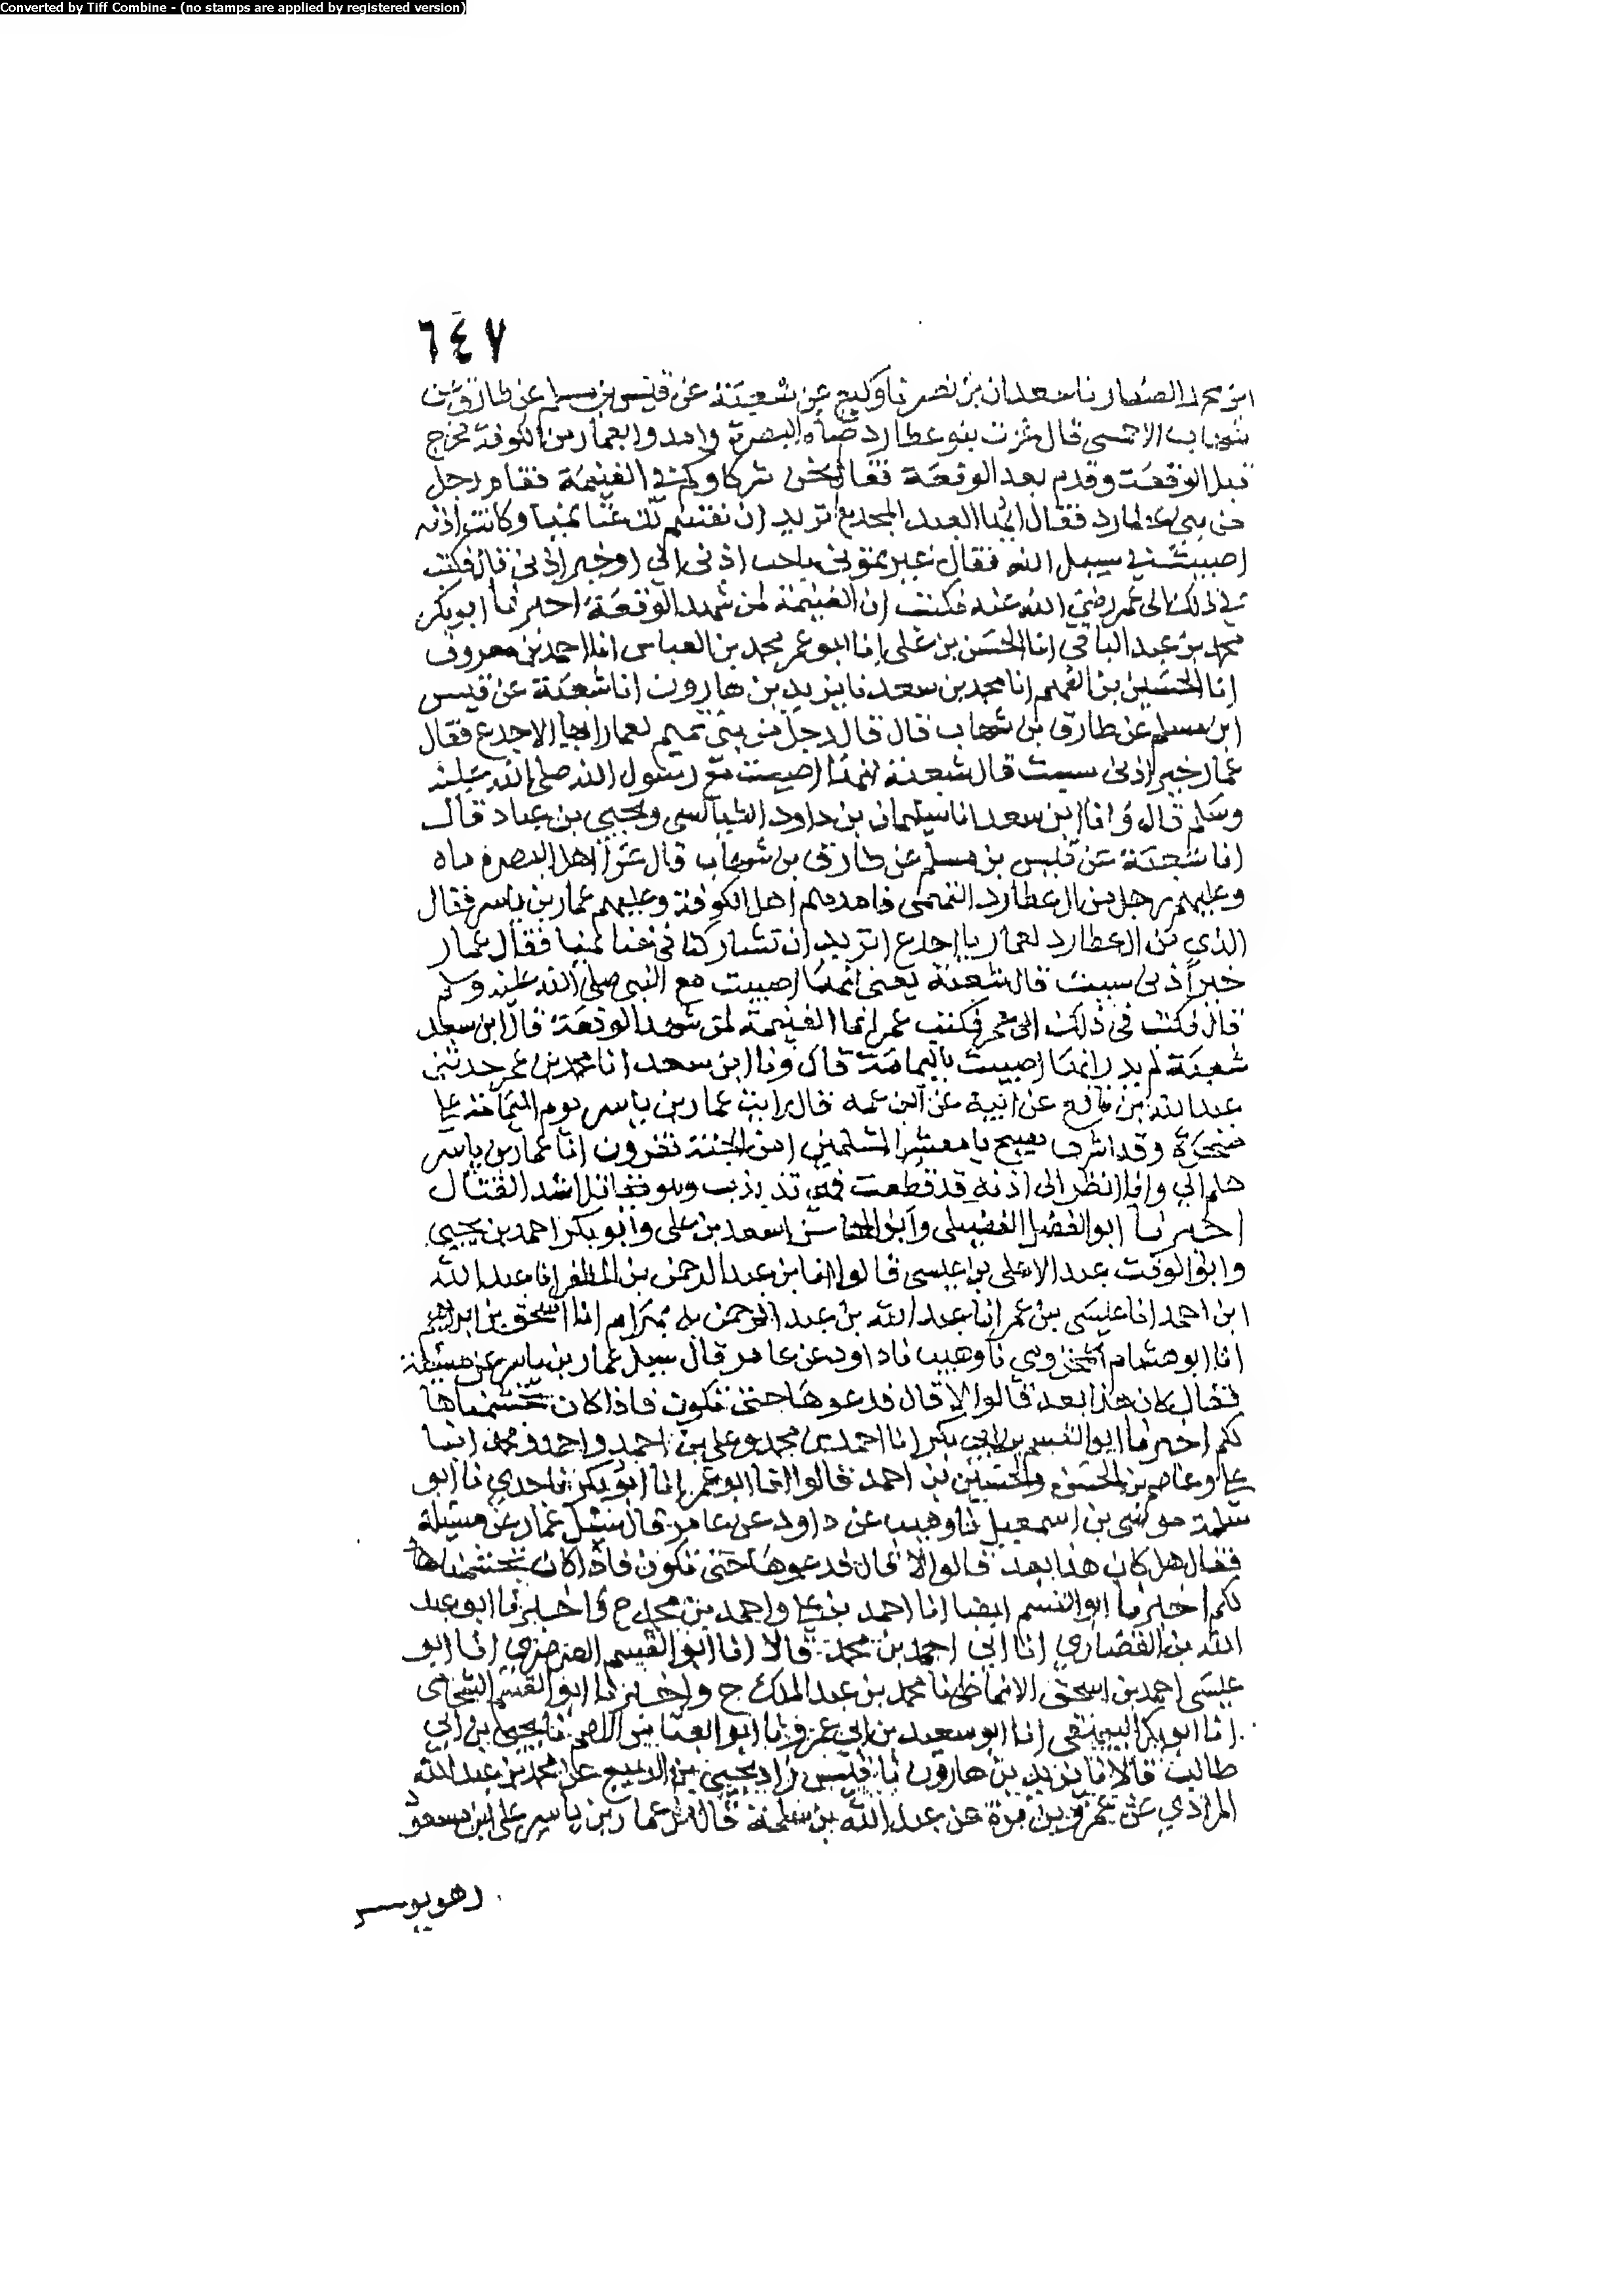 Converted by Tiff Combine - (no stamps are applied by registered version)
٦٤٧
ابن محمد الصفار نا سعدان بن نصر نا وكيع عن شعبة عن قيس بن مسلم عن طارق بن
شهاب الاحمسي قال غزت بنو عطارد ماه البصرة وامدوا بعمار من الكوفة فخرج
قبل الوقعة وقدم بعد الوقعة فقال نحن شركاوكم في الغنيمة فقام رجل
من بني عطارد فقال ايها العبد المجدع اتريد ان نقسم لك غنائمنا وكانت اذنه
اصيبت في سبيل الله فقال عيرتموني باحب اذني الي او خير اذني قال فكتب
في ذلك الى عمر رضي الله عنه فكتب ان الغنيمة لمن شهد الوقعة اخبرنا ابو بكر
محمد بن عبد الباقي انا الحسن بن علي انا ابو عمر محمد بن العباس انا احمد بن معروف
انا الحسين بن الفهم انا محمد بن سعد نا يزيد بن هارون انا شعبة عن قيس
ابن مسلم عن طارق بن شهاب قال قال رجل من بني تميم لعمار ايها الاجدع فقال
عمار خير اذني سببت قال شعبة انها اصيبت مع رسول الله صلى الله عليه
وسلم قال وانا ابن سعد انا سليمان بن داود الطيالسي ويحيى بن عباد قال
انا شعبة عن قيس بن مسلم عن طارق بن شهاب قال غزا اهل البصرة ماه
وعليهم رجل من ال عطارد التميمي فامدهم اهل الكوفة وعليهم عمار بن ياسر فقال
الذي من ال عطارد لعمار يا اجدع اتريد ان تشاركنا في غنائمنا فقال عمار
خير اذني سببت قال شعبة يعني انها اصيبت مع النبي صلى الله عليه وسلم
قال فكتب في ذلك الى عمر فكتب عمر انما الغنيمة لمن شهد الوقعة قال ابن سعد
شعبة لم يدر انها اصيبت باليمامة قال ونا ابن سعد انا محمد بن عمر حدثني
عبد الله بن نافع عن ابيه عن ابن عمه قال رايت عمار بن ياسر يوم اليمامة على
صخرة وقد اشرف يصيح يا معشر المسلمين امن الجنة تفرون انا عمار بن ياسر
هلم الي وانا انظر الى اذنه قد قطعت فهي تذبذب وهو يقاتل اشد القتال
اخبرنا ابو الفضل الفضيلي وابو المحاسن اسعد بن علي وابو بكر احمد بن يحيى
وابو الوقت عبد الاعلى بن عيسى قالوا انا بن عبد الرحمن بن المظفر انا عبد الله
ابن احمد انا عيسى بن عمر انا عبد الله بن عبد الرحمن بن بهرام انا اسحق بن ابراهيم
انا ابو هشام المخزومي نا وهيب نا داود عن عامر قال سيل عمار بن ياسر عن مسئلة
فقال كان هذا بعد قالوا لا قال فدعوها حتى تكون فاذا كان تجشمناها
لكم اخبرنا ابو القسم بن ابي بكر انا احمد بن محمد وعلي بن احمد واحمد ومحمد ابنا
علي وعاصم بن الحسن والحسين بن احمد قالوا انا ابو عمر انا ابو بكر نا جدي نا ابو
سلمة موسى بن اسمعيل نا وهيب عن داود عن عامر قال سئل عمار عن مسئلة
فقال هل كان هذا بعد قالوا لا قال فدعوها حتى تكون فاذا كان تجشمناها
لكم اخبرنا ابو القسم ايضا انا احمد بن علي واحمد بن محمد ح واخبرنا ابو عبد
الله بن القصاري انا ابي احمد بن محمد قالا انا ابو القسم الصرصري انا ابو
عيسى احمد بن اسحق الانماطي نا محمد بن عبد الملك ح واخبرنا ابو القسم الشحامي
انا ابو بكر البيهقي انا ابو سعيد بن ابي عمرو نا ابو العباس الاصم نا يحيى بن ابي
طالب قالا نا يزيد بن هارون نا قيس زاد يحيى بن الربيع عن محمد بن عبد الله
المرادي عن عمرو بن مرة عن عبد الله بن سلمة قال مر عمار بن ياسر على ابن مسعود
وهو يوسس